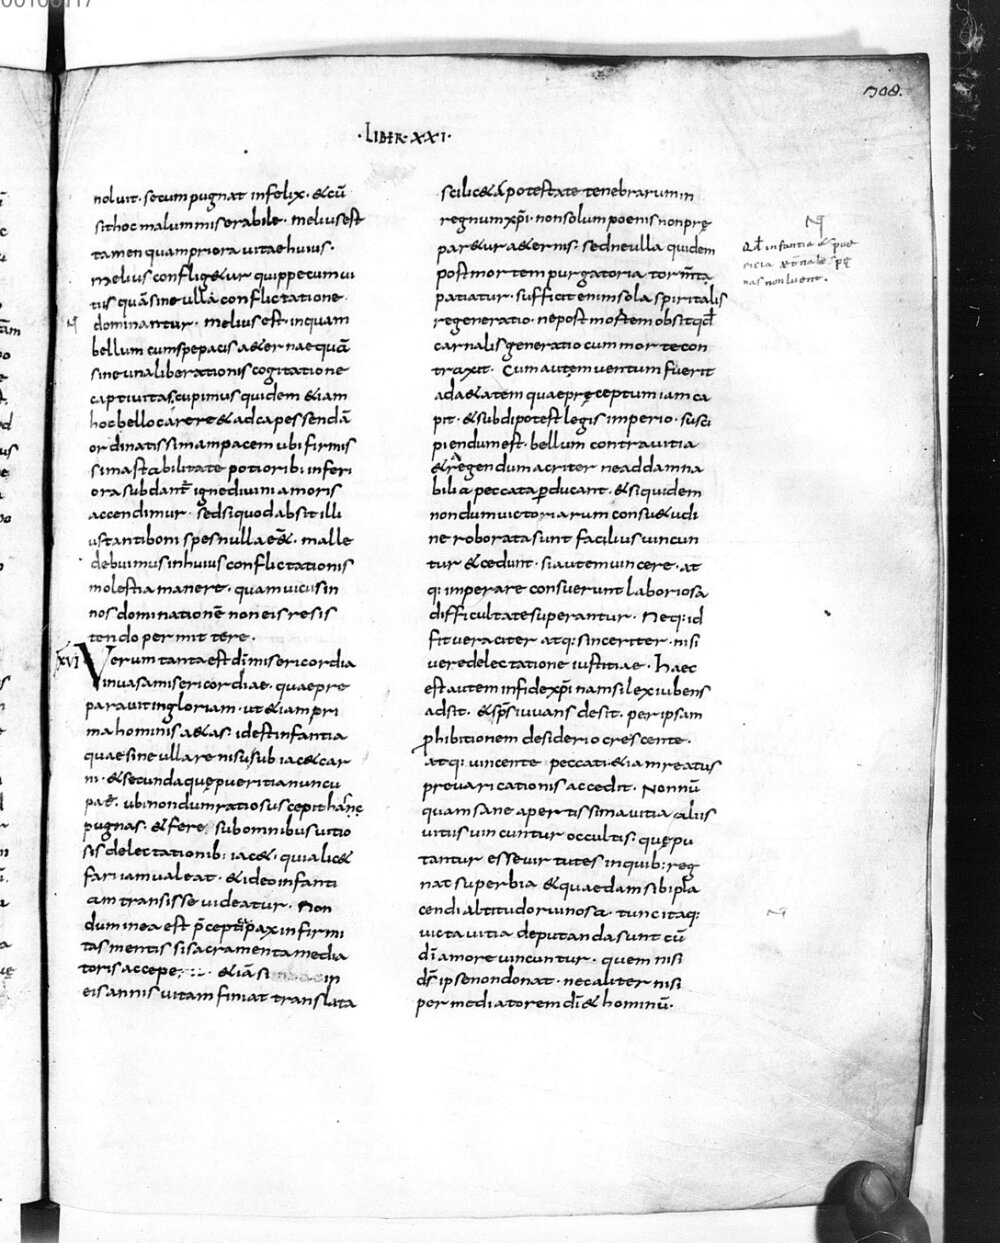 308.
·LIBER·XXI·
noluit· secum pugnat infelix· &cū
sit hoc malum miserabile· melius est
tamen quam priora vitae huius·
melius confligetur quippe cum vi
tiis quā sine ulla conflictatione
dominantur· melius est inquam
bellum cum spe pacis a&ernae quā
sine una liberationis cogitatione
captivitas cupimus quidem & iam
hoc bello carere & ad capessendā
ordinatissimam pacem ubi firmis
sima stabilitate potiorib; inferi
ora subdant̄ igne divini amoris
accendimur· sed si quod absit illi
us tanti boni spes nulla eē&· malle
debuimus in huius conflictationis
molestia manere· quam viciis in
nos dominationē non eis resis
tendo permittere·
XVI Verum tanta est dī misericordia
in vasa misericordiae· quae pre
paravit in gloriam· ut &iam pri
ma hominis a&as· id est infantia
quae sine ullo renisu subiac& car
ni· & secunda quę pueritia nuncu
pat̄· ubi nondum ratio suscepit hanc
pugnas· & fere sub omnibus vitio
sis delectationib; iac&· quia lic&
fari iam valeat· & ideo infanti
am transisse videatur· Non
dum in ea est p̄cepti capax infirmi
tas mentis si sacramenta media
toris accepe · &iā si in
eis annis vitam finiat translata
scilic& a potestate tenebrarum in
regnum xp̄i· non solum poenis non prę
par&ur a&ernis· sed ne ulla quidem
post mortem purgatoria torm̄ta
patiatur· sufficit enim sola spiritalis
regeneratio· ne post mortem obsit qd̄
carnalis generatio cum morte con
traxit· Cum autem ventum fuerit
ad a&atem quae pręceptum iam ca
pit· & subdi potest legis imperio· susci
piendum est· bellum contra vitia
& regendum acriter ne ad damna
bilia peccata ꝑducant· & si quidem
nondum victoriarum consu&udi
ne roborata sunt facilius vincun
tur & cedunt· si autem vincere· at
q; imperare consuerunt laboriosa
difficultate superantur· Neq; id
fit veraciter atq; sinceriter· nisi
vere delectatione iustitiae· Haec
est autem in fide xp̄i nam si lex iubens
adsit· & sp̄s iuvans desit· per ipsam
ꝓhibitionem desiderio crescente·
atq; vincente peccati &iam reatus
prevaricationis accedit· Nonnū
quam sane apertissima vitia aliis
vitiis vincuntur occultis· quę pu
tantur esse virtutes in quib; reg
nat superbia & quaedam sibi pla
cendi altitudo ruinosa· tunc itaq;
victa vitia deputanda sunt cū
dī amore vincuntur· quem nisi
ds̄ ipse non donat· nec aliter nisi
per mediatorem dī & hominū·
Qd̄ infantia & pue
ricia pę
nas non luent·